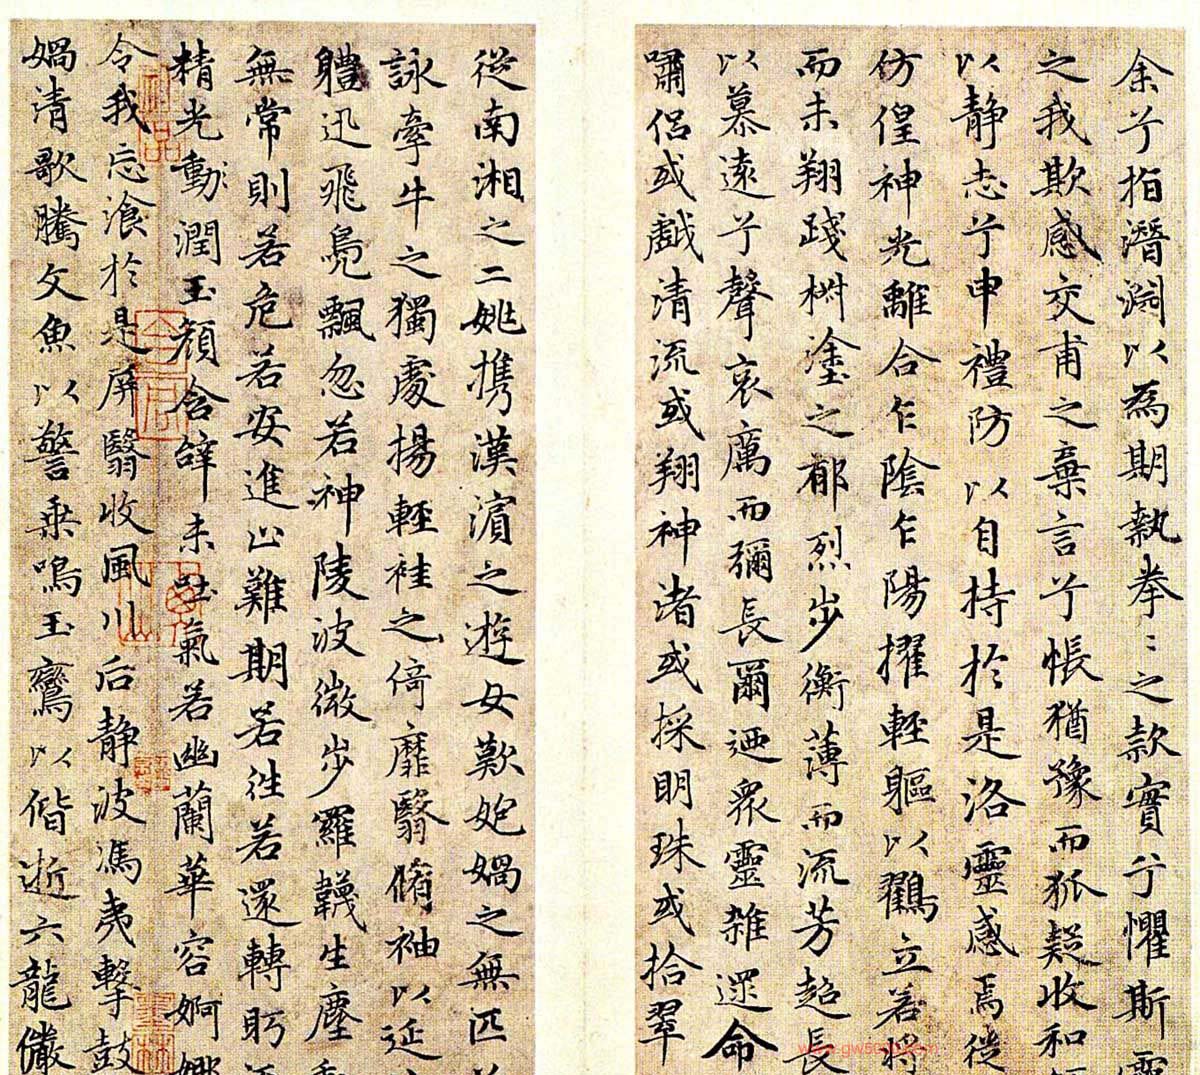 余兮指潛淵以為期執拳〻之款實兮懼斯靈
之我欺感交甫之棄言兮悵猶豫而狐疑收和
以靜志兮申禮防以自持於是洛靈感焉徙
仿偟神光離合乍陰乍陽擢輕軀以鸛立若將
而未翔踐椒塗之郁烈步衡薄而流芳超長
以慕遠兮聲哀厲而彌長爾迺眾靈雜遝命
嘯侶或戲清流或翔神渚或採明珠或拾翠
從南湘之二姚攜漢濱之遊女歎匏媧之無匹
詠牽牛之獨處揚輕袿之倚靡翳脩袖以延
體迅飛鳧飄忽若神陵波微步羅韈生塵
無常則若危若安進止難期若往若還轉眄
精光動潤玉顏含辭未吐氣若幽蘭華容婀娜
令我忘飡於是屏翳收風川后靜波馮夷擊鼓
媧清歌騰文魚以警乘鳴玉鸞以偕逝六龍儼